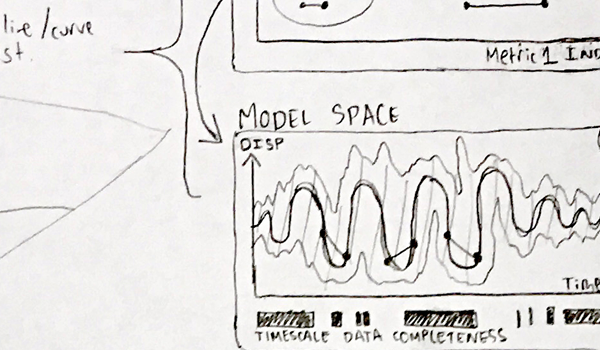 line/curve
st.
Metric 1 IND
MODEL SPACE
DISP
Time
TIMESCALE DATA COMPLETENESS